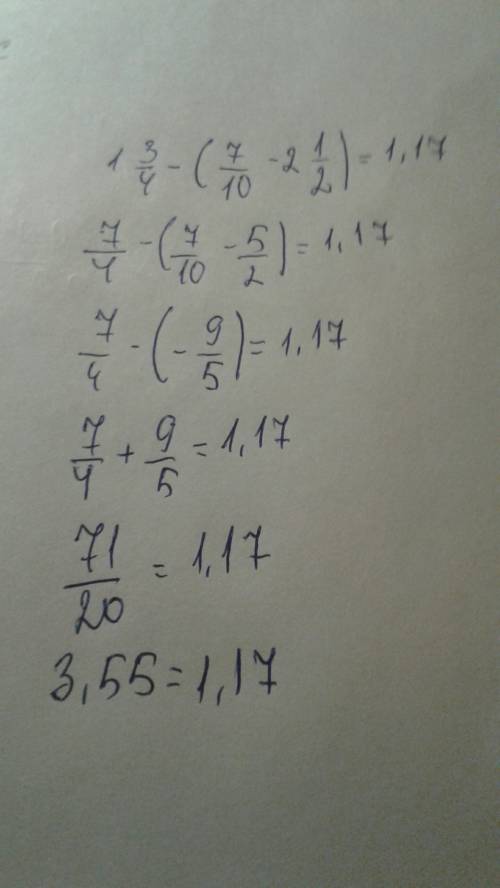 1 3/4 - (7/10 - 2 1/2) = 1,17
7/4 - (7/10 - 5/2) = 1,17
7/4 - (- 9/5) = 1,17
7/4 + 9/5 = 1,17
71/20 = 1,17
3,55 = 1,17